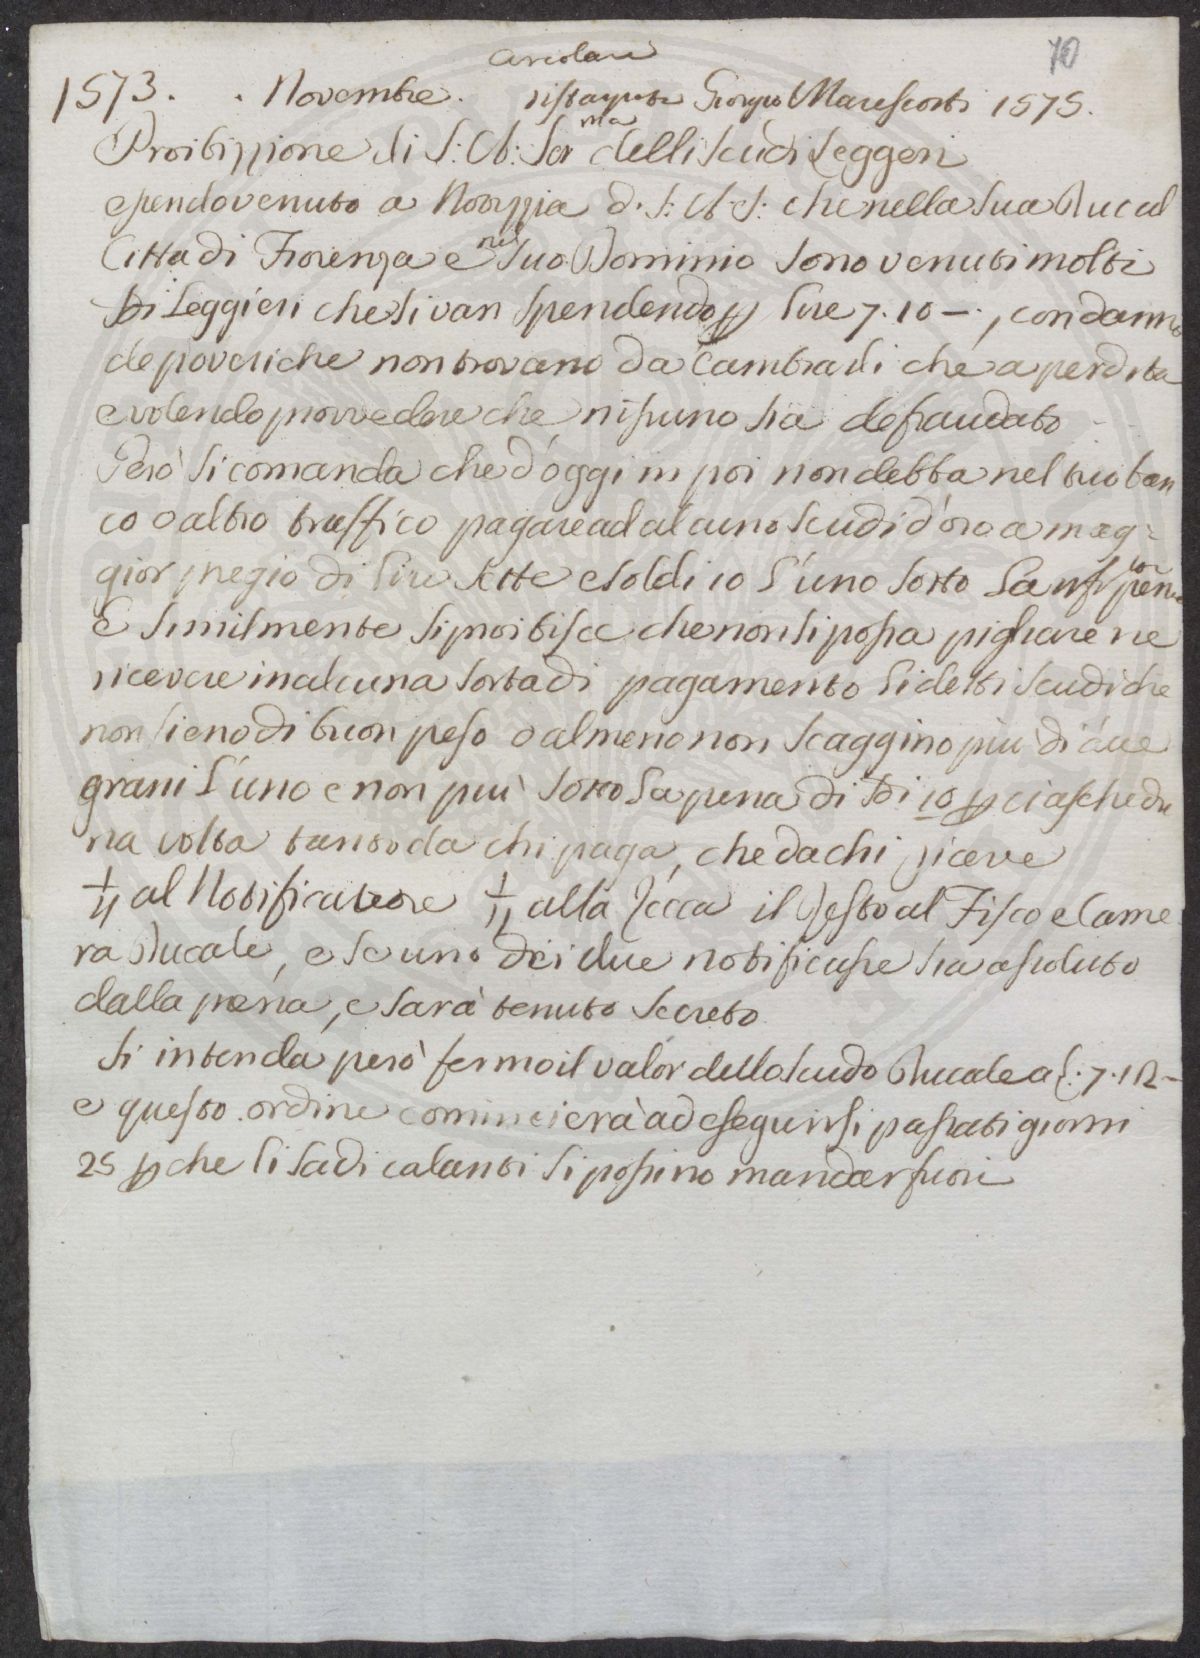 Circolare
70
1573. . Novembre. ristampata Giorgio Marescotti 1575.
Proibizzione di S: A: Serma delli scudi leggeri
essendo venuto a Notizzia d. S: A: S: che nella sua Ducal
Città di Fiorenza e nel suo Dominio sono venuti molti
Di leggieri che si van spendendo p lire 7. 10 —. , con danno
de poveri che non trovano da cambiarli che a perdita
e volendo provvedere che nissuno sia defraudato
Però si comanda che d'oggi in poi non debba nel suo ban
co o altro traffico pagare ad alcuno scudi d'oro a mag=
gior pregio di lire sette e soldi 10 l'uno sotto la pena
E similmente si proibisce che non si possa pigliare ne
ricevere in alcuna sorta di pagamento li detti scudi che
non sieno di buon peso o almeno non scaggino più di due
grani l'uno e non più sotto la pena di Di 10 p ciaschedu
na volta tanto da chi paga, che da chi riceve
al Notificatore alla Zecca il resto al Fisco e Came
ra Ducale, e se uno dei due notificasse sia assoluto
dalla pena, e sarà tenuto secreto
Si intenda però fermo il valor dello scudo Ducale a £. 7. 12 —
e questo ordine comincierà ad eseguirsi passati giorni
25 p che li scudi calanti si possino mandar fuori